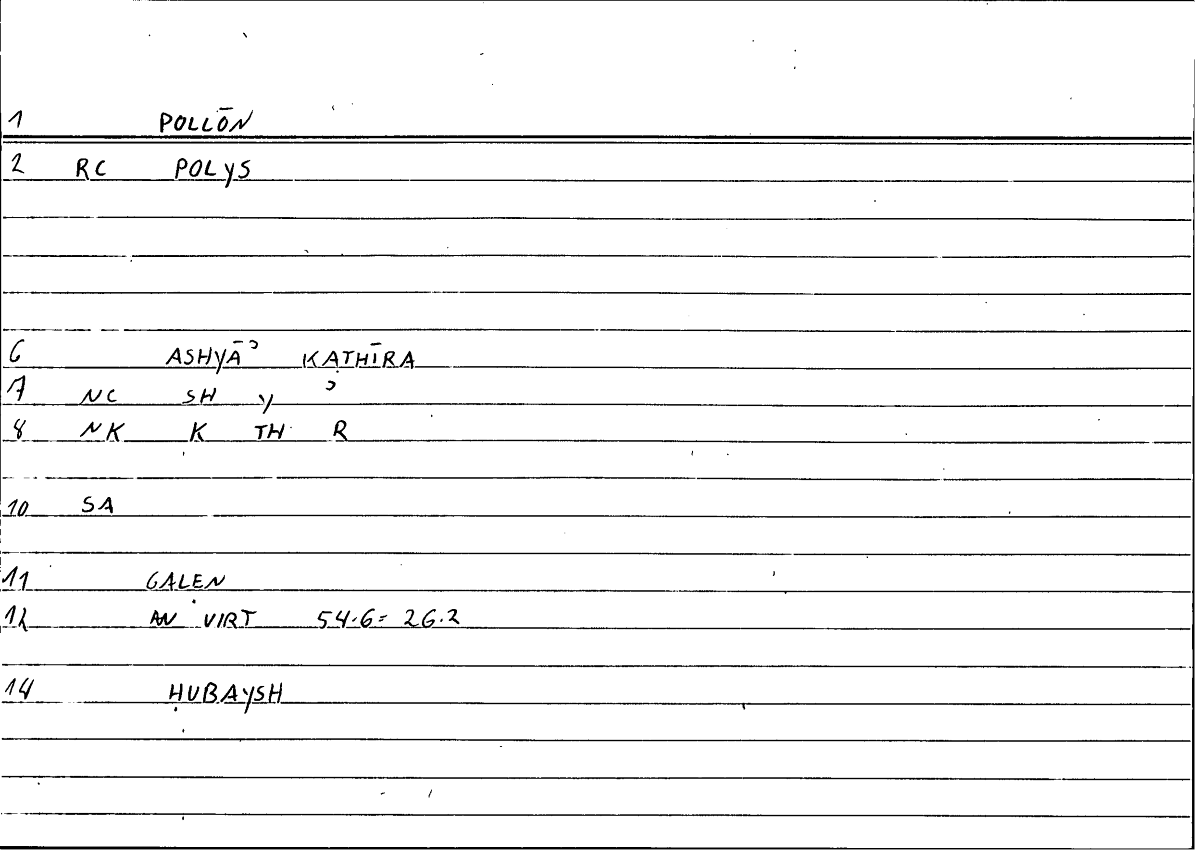 1 POLLŌN
2 RC POLYS
6 ASHYĀʾ KATHĪRA
7 NC SH Y ʾ
8 NK K TH R
10 SA
11 GALEN
12 AN VIRT 54.6= 26.2
14 ḤUBAYSH